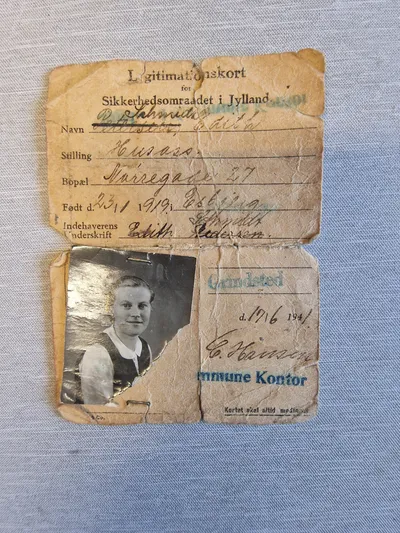 Legitimationskort
for
Sikkerhedsomraadet i Jylland
Schmidt
Navn Pedersen, Edith
Stilling Husass.
Bopæl Nørregade 27
Født d. 23/1 1919, Esbjerg
Schmidt
Indehaverens
Underskrift Edith Pedersen.
Grindsted
d. 17/6 1941.
C. Hansen
mmune Kontor
Kortet skal altid medbringes